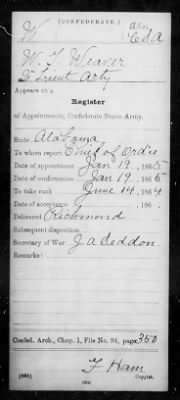 (CONFEDERATE.)
W CSA
W. T. Weaver
Lieut Arty
Appears on a
Register
of Appointments, Confederate States Army.
State Alabama
To whom report Chief of Ord'ce
Date of appointment Jan 19, 1865
Date of confirmation Jan 19, 1865
To take rank June 14, 1864
Date of acceptance , 186 .
Delivered Richmond
Subsequent disposition
Secretary of War J A Seddon
Remarks:
Confed. Arch., Chap. 1, File No. 94, page 350
Ham
Copyist.